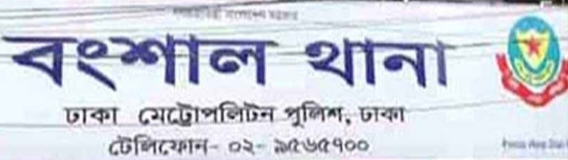 বংশাল থানা
ঢাকা মেট্রোপলিটন পুলিশ, ঢাকা
টেলিফোন- ০২- ৯৫৬৫৭০০